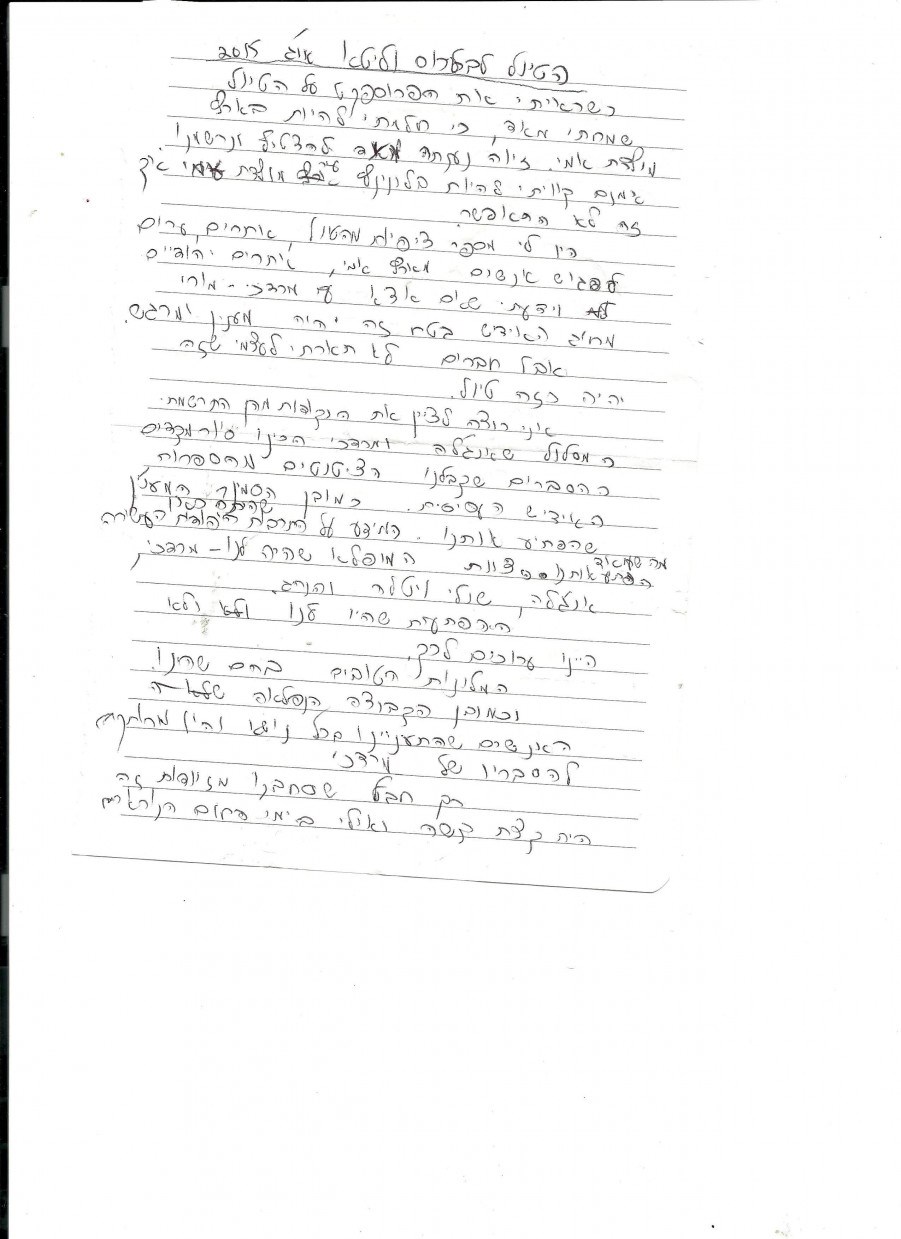 הטיול לבלרוס וליטא אוג' 2015
כשראיתי את הפרוספקט על הטיול
שמחתי מאד, כי חלמתי להיות בארץ
מולדת אמי. זיוה נענתה להצטרף ונרשמנו.
אימנם קיוויתי להיות בלונינץ עיר מולדת אך
זה לא התאפשר.
היו לי מספר ציפיות מהטיול, אתרים, ערים
לפגוש אנשים מארץ אמי, אתרים יהודיים
וידעתי שאם אצא עם מרדכי - מורי
מחוג האידיש בטח זה יהיה מענין ומרגש.
אבל חברים לא תארתי לעצמי שזה
יהיה כזה טיול.
אני רוצה לציין את הנקודות מהן התרשמתי
המסלול שאנג'לה ומרדכי הכינו סיור מקדים
ההסברים שקבלנו הציטטים מהספרות,
האידיש העסיסית. כמובן הסמינר המענין
שהפתיע אותנו. המידע על התרבות היהודית העשירה
מה שמאוד
הפתיע אותנו צוות המופלא שהיה לנו - מרדכי,
אנג'לה, שולי ויטלה והנהג.
ההפתעות שהיו לנו ולא
היינו ערוכים לכך.
המלונות הטובים בהם שהינו.
וכמובן הקבוצה הנפלאה
האנשים שהתעניינו בכל נושא והיו מרותקים
להסבריו של מרדכי
רק חבל שסחבנו מזוודות זה
היה קצת קשה ואולי בימי החום הנוראים